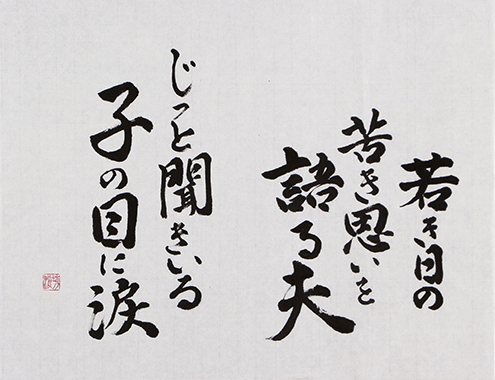 若き日の
苦き思いを
語る夫
じっと聞きいる
子の目に涙